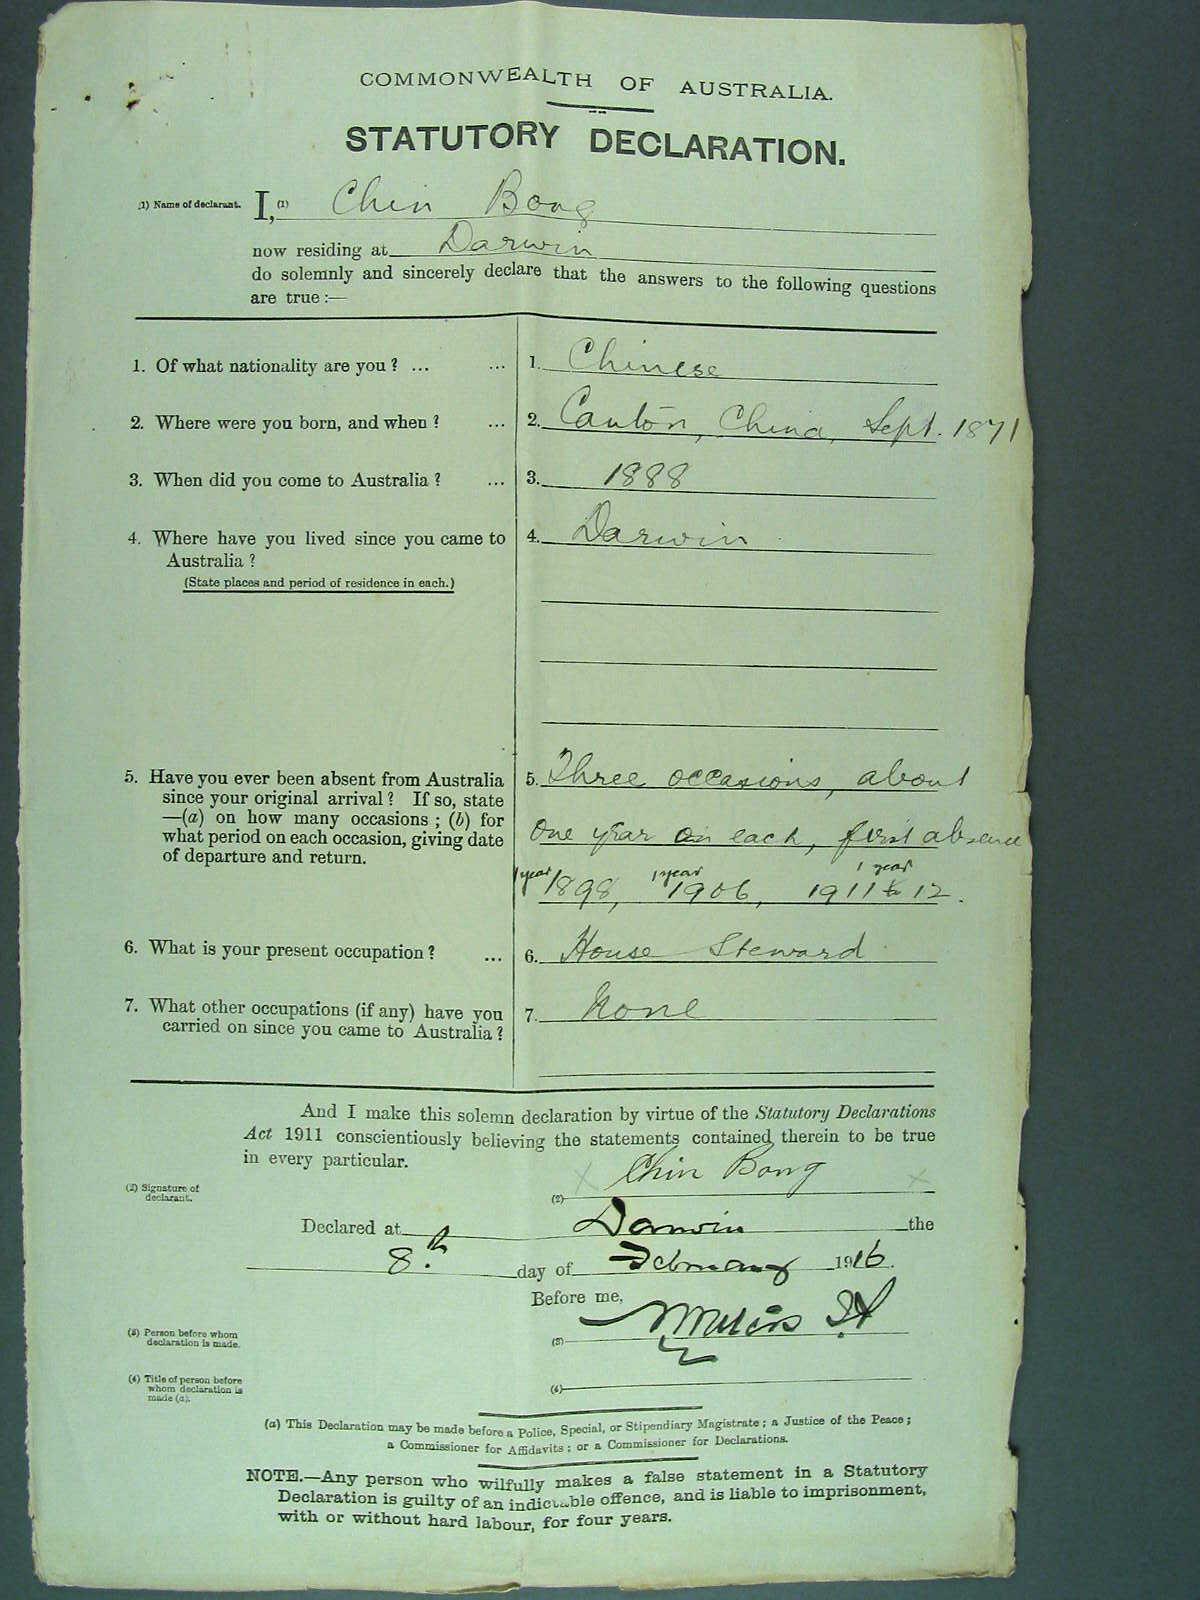 COMMONWEALTH OF AUSTRALIA.
STATUTORY DECLARATION.
(1) Name of declarant. I, (1) Chin Bong
now residing at Darwin
do solemnly and sincerely declare that the answers to the following questions
are true :—
1. Of what nationality are you ? ... ... 1. Chinese
2. Where were you born, and when ? ... 2. Canton, China, Sept. 1871
3. When did you come to Australia ? ... 3. 1888
4. Where have you lived since you came to 4. Darwin
Australia ?
(State places and period of residence in each.)
5. Have you ever been absent from Australia 5. Three occasions, about
since your original arrival ? If so, state
—(a) on how many occasions ; (b) for one year on each, first absence
what period on each occasion, giving date
of departure and return.
1 year 1 year 1 year
1898, 1906, 1911 to 12.
6. What is your present occupation ? ... 6. House Steward
7. What other occupations (if any) have you 7. None
carried on since you came to Australia ?
And I make this solemn declaration by virtue of the Statutory Declarations
Act 1911 conscientiously believing the statements contained therein to be true
in every particular.
(2) Signature of
declarant.
(2) X Chin Bong X
Declared at Darwin the
8th day of February 1916.
Before me,
(3) Person before whom
declaration is made.
(3)
(4) Title of person before
whom declaration is
made (a).
(4)
(a) This Declaration may be made before a Police, Special, or Stipendiary Magistrate ; a Justice of the Peace ;
a Commissioner for Affidavits ; or a Commissioner for Declarations.
NOTE.—Any person who wilfully makes a false statement in a Statutory
Declaration is guilty of an indictable offence, and is liable to imprisonment,
with or without hard labour, for four years.